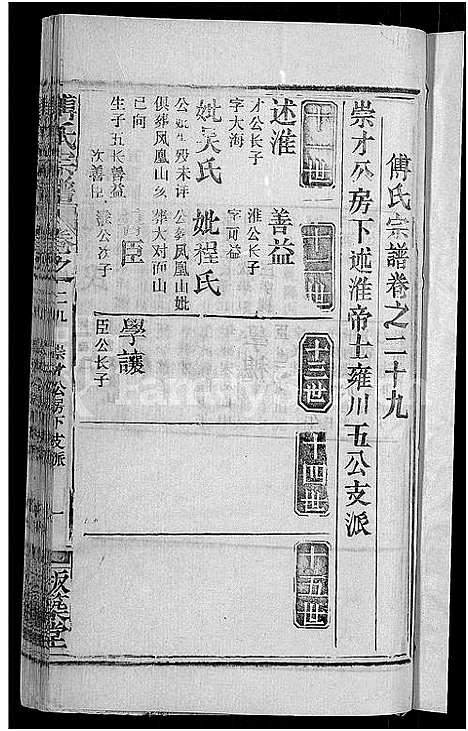 傅氏宗譜卷之二十九
崇才公房下述淮帝士雍川五公支派
十一世
十二世
十三世
十四世
十五世
述淮
才公長子
字大海
妣吳氏
公妣生殁未详
俱葬凤凰山亥
巳向
生子五长善益
次善臣
善益
淮公长子
字可益
妣程氏
公葬凤凰山妣
葬大对面山
善臣
淮公次子
學讓
臣公长子
傅氏宗譜
卷之二九
崇才公房下支派
一